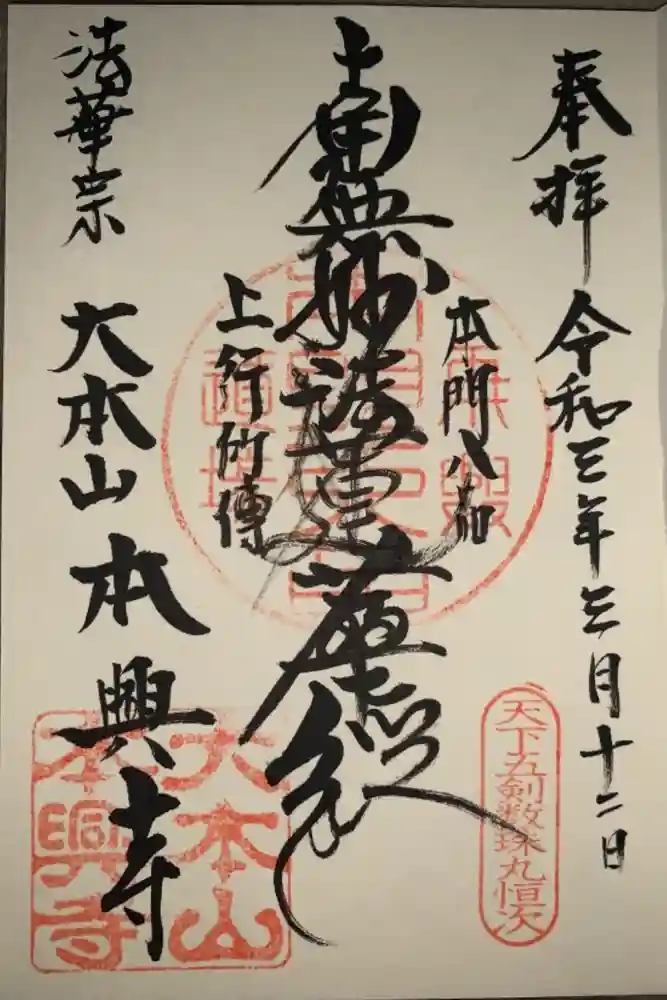 奉拝
令和三年三月十二日
本門八品
南無妙法蓮華経
上行所傳
法華宗
大本山 本興寺
天下五剣数珠丸恒次
大本山
本興寺